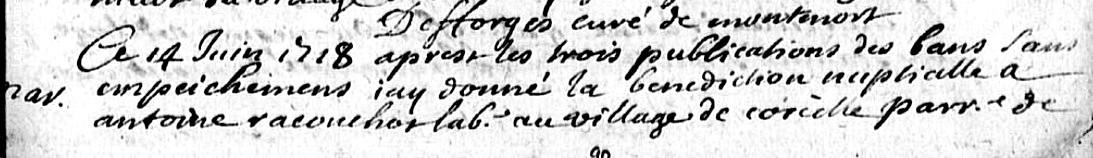 Desforges curé de montmort
Ce 14 Juin 1718 aprest les trois publications des bans Sans
mar. empeichemens iay donné la benediction nuptialle a
antoine racouchot lab.r au village de corcelle parr.e de